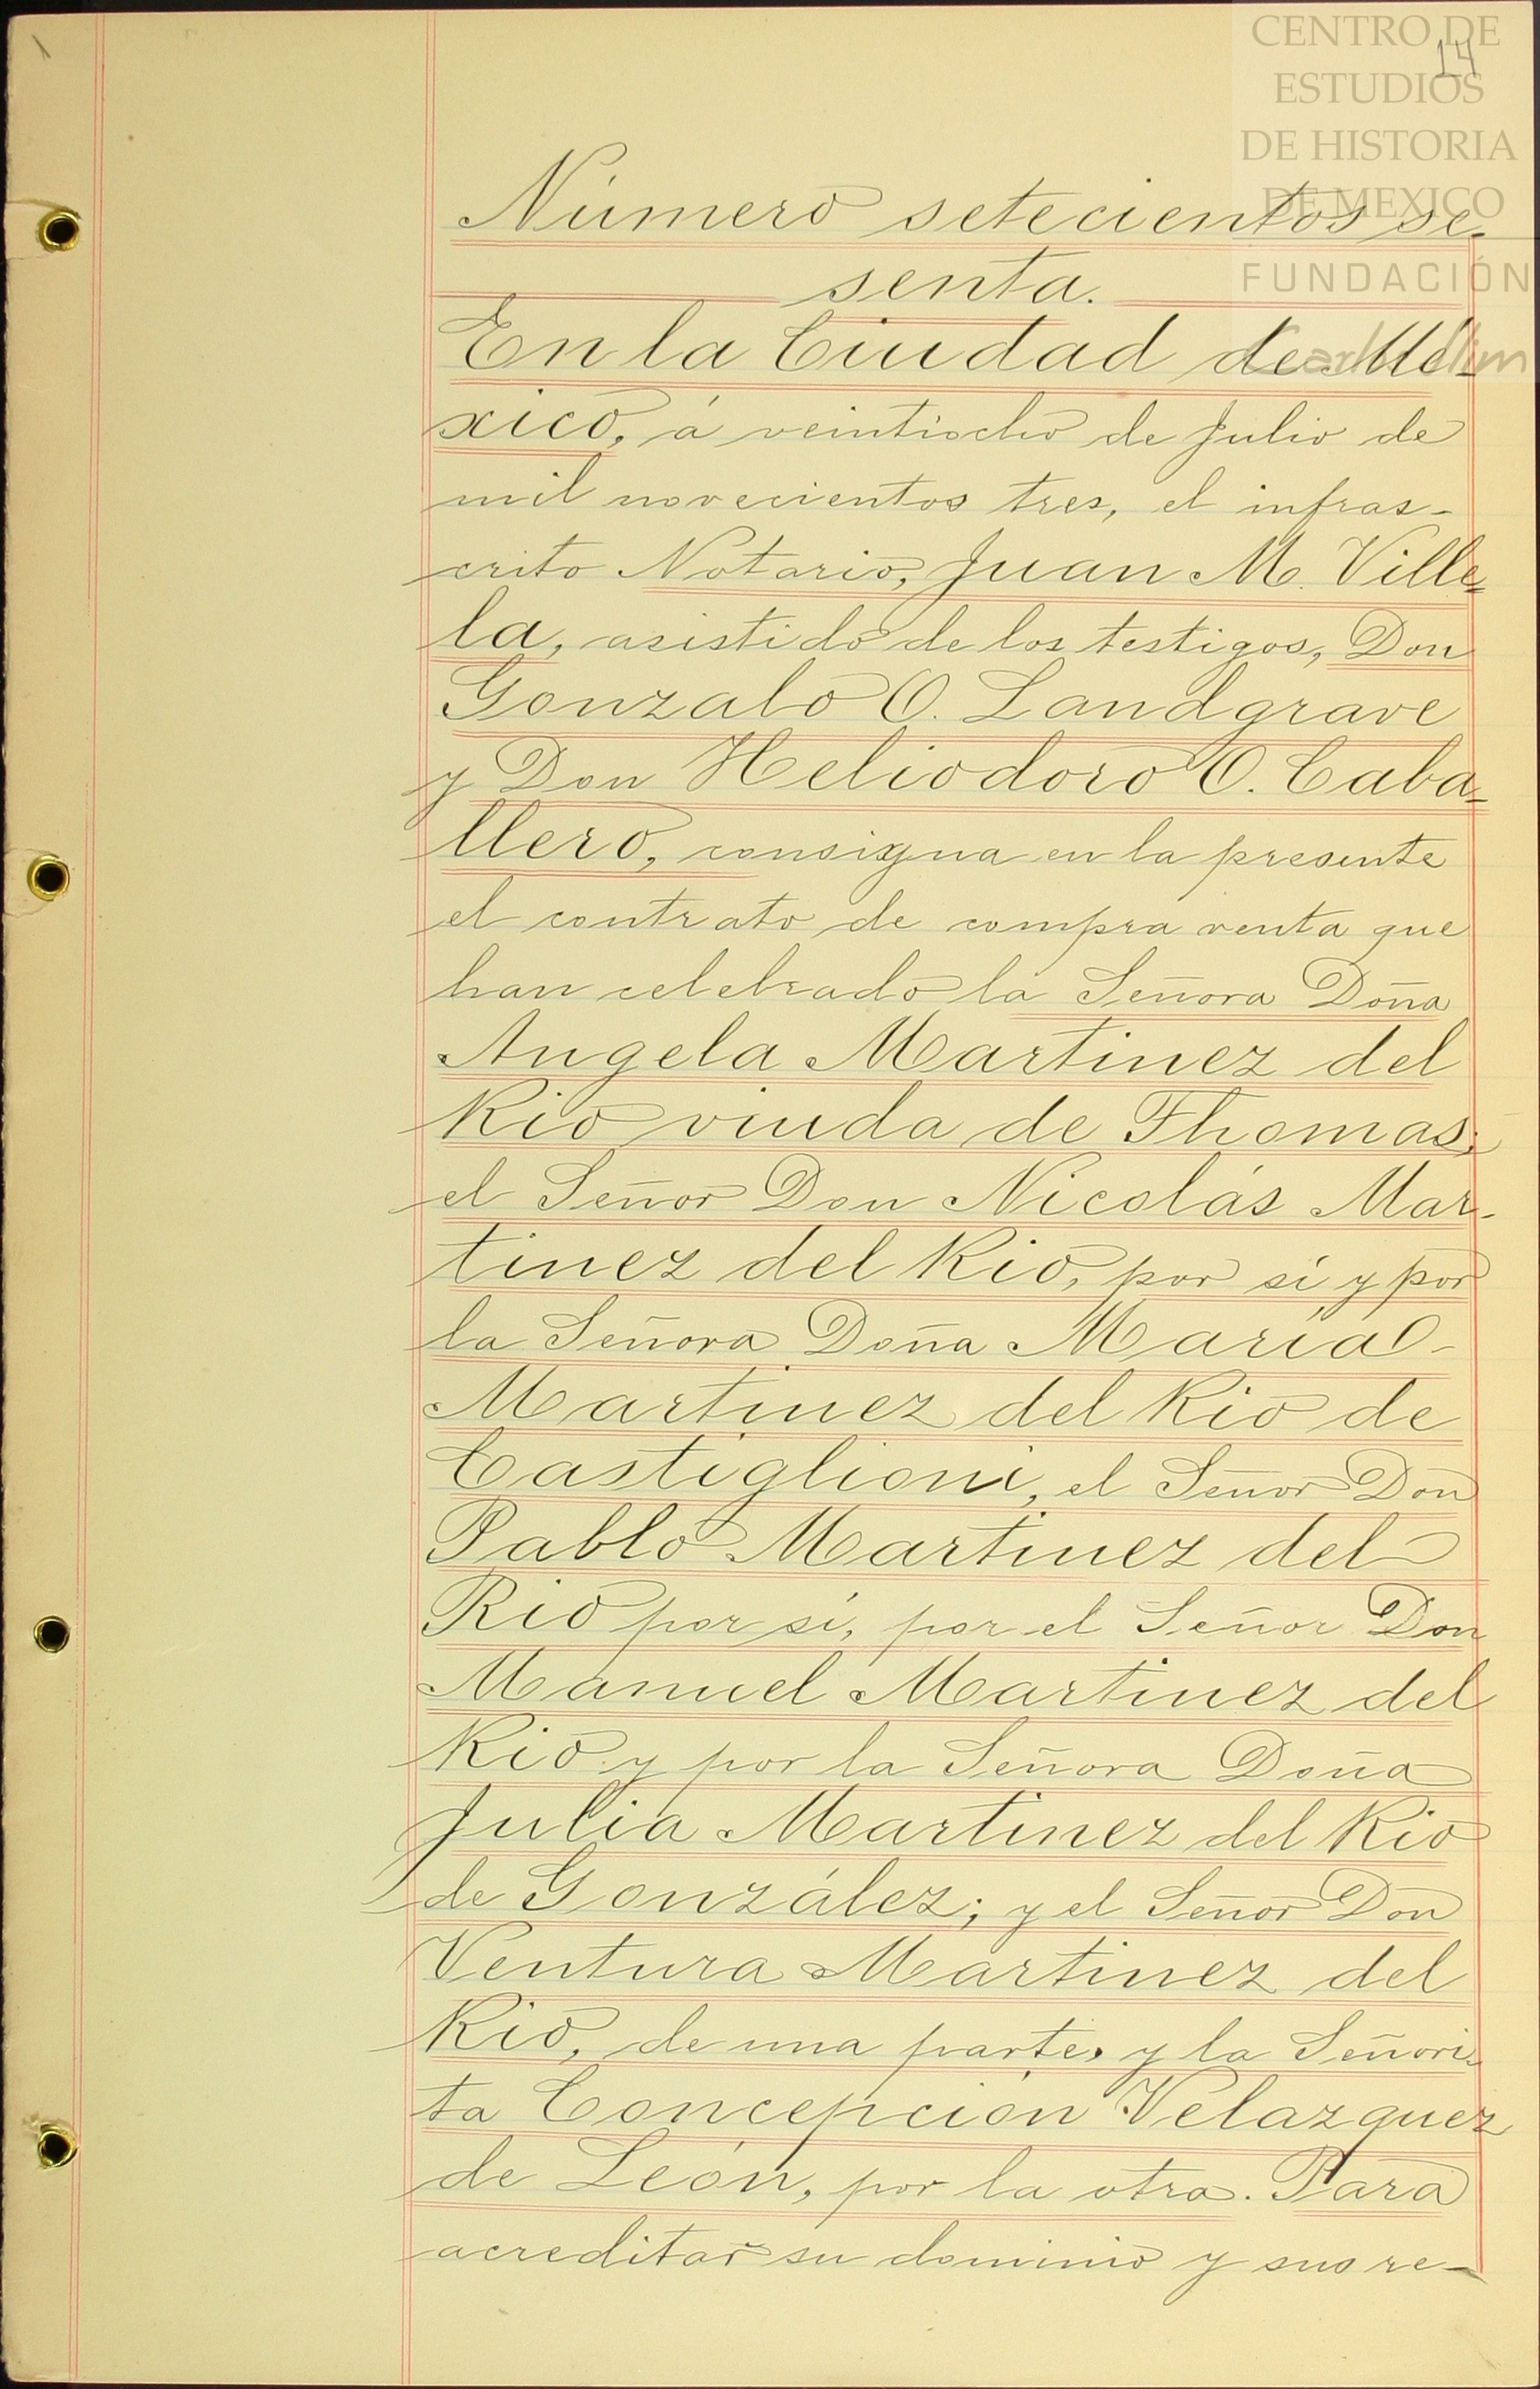 CENTRO DE
14
ESTUDIOS
DE HISTORIA
DE MEXICO
FUNDACIÓN
Carlos Slim
Número setecientos se-
senta.
En la Ciudad de Mé-
xico, á veintiocho de Julio de
mil novecientos tres, el infras-
crito Notario, Juan M. Ville-
la, asistido de los testigos, Don
Gonzalo O. Landgrave
y Don Heliodoro O. Caba-
llero, consigna en la presente
el contrato de compra venta que
han celebrado la Señora Doña
Angela Martinez del
Rio viuda de Thomas;
el Señor Don Nicolás Mar-
tinez del Rio, por sí y por
la Señora Doña María
Martinez del Rio de
Castiglioni, el Señor Don
Pablo Martinez del
Rio por sí, por el Señor Don
Manuel Martinez del
Rio y por la Señora Doña
Julia Martinez del Rio
de González; y el Señor Don
Ventura Martinez del
Rio, de una parte, y la Señori-
ta Concepción Velazquez
de León, por la otra. Para
acreditar su dominio y sus re-